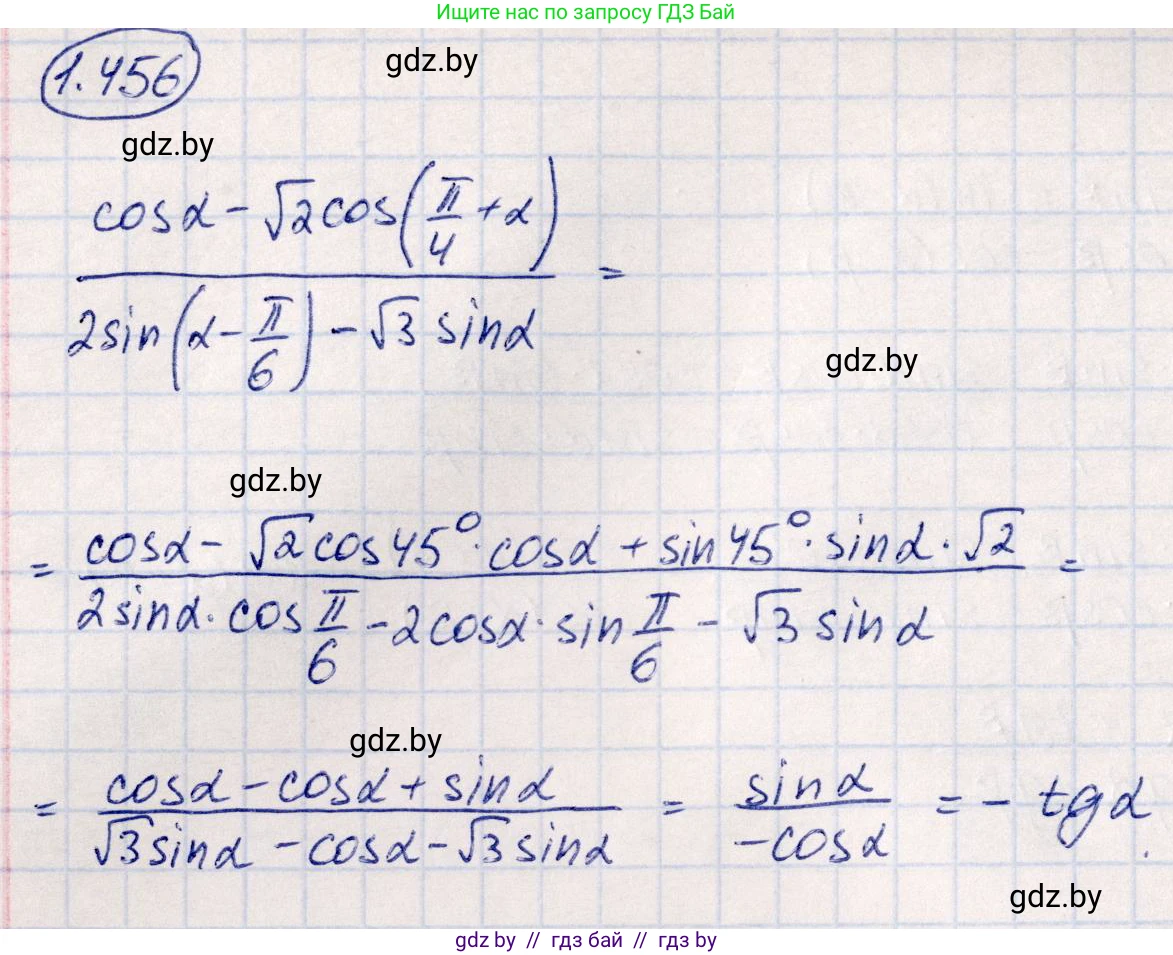 Ищите нас по запросу ГДЗ Бай
1.456
gdz.by
gdz.by
cosα - √2cos(π/4 + α)
=
2sin(α - π/6) - √3 sinα
gdz.by
gdz.by
= cosα - √2cos45°·cosα + sin45°·sinα·√2 =
2sinα·cos π/6 - 2cosα·sin π/6 - √3 sinα
gdz.by
= cosα - cosα + sinα = sinα = - tgα.
√3 sinα - cosα - √3 sinα   -cosα
gdz.by
gdz by // гдз бай // gdz by